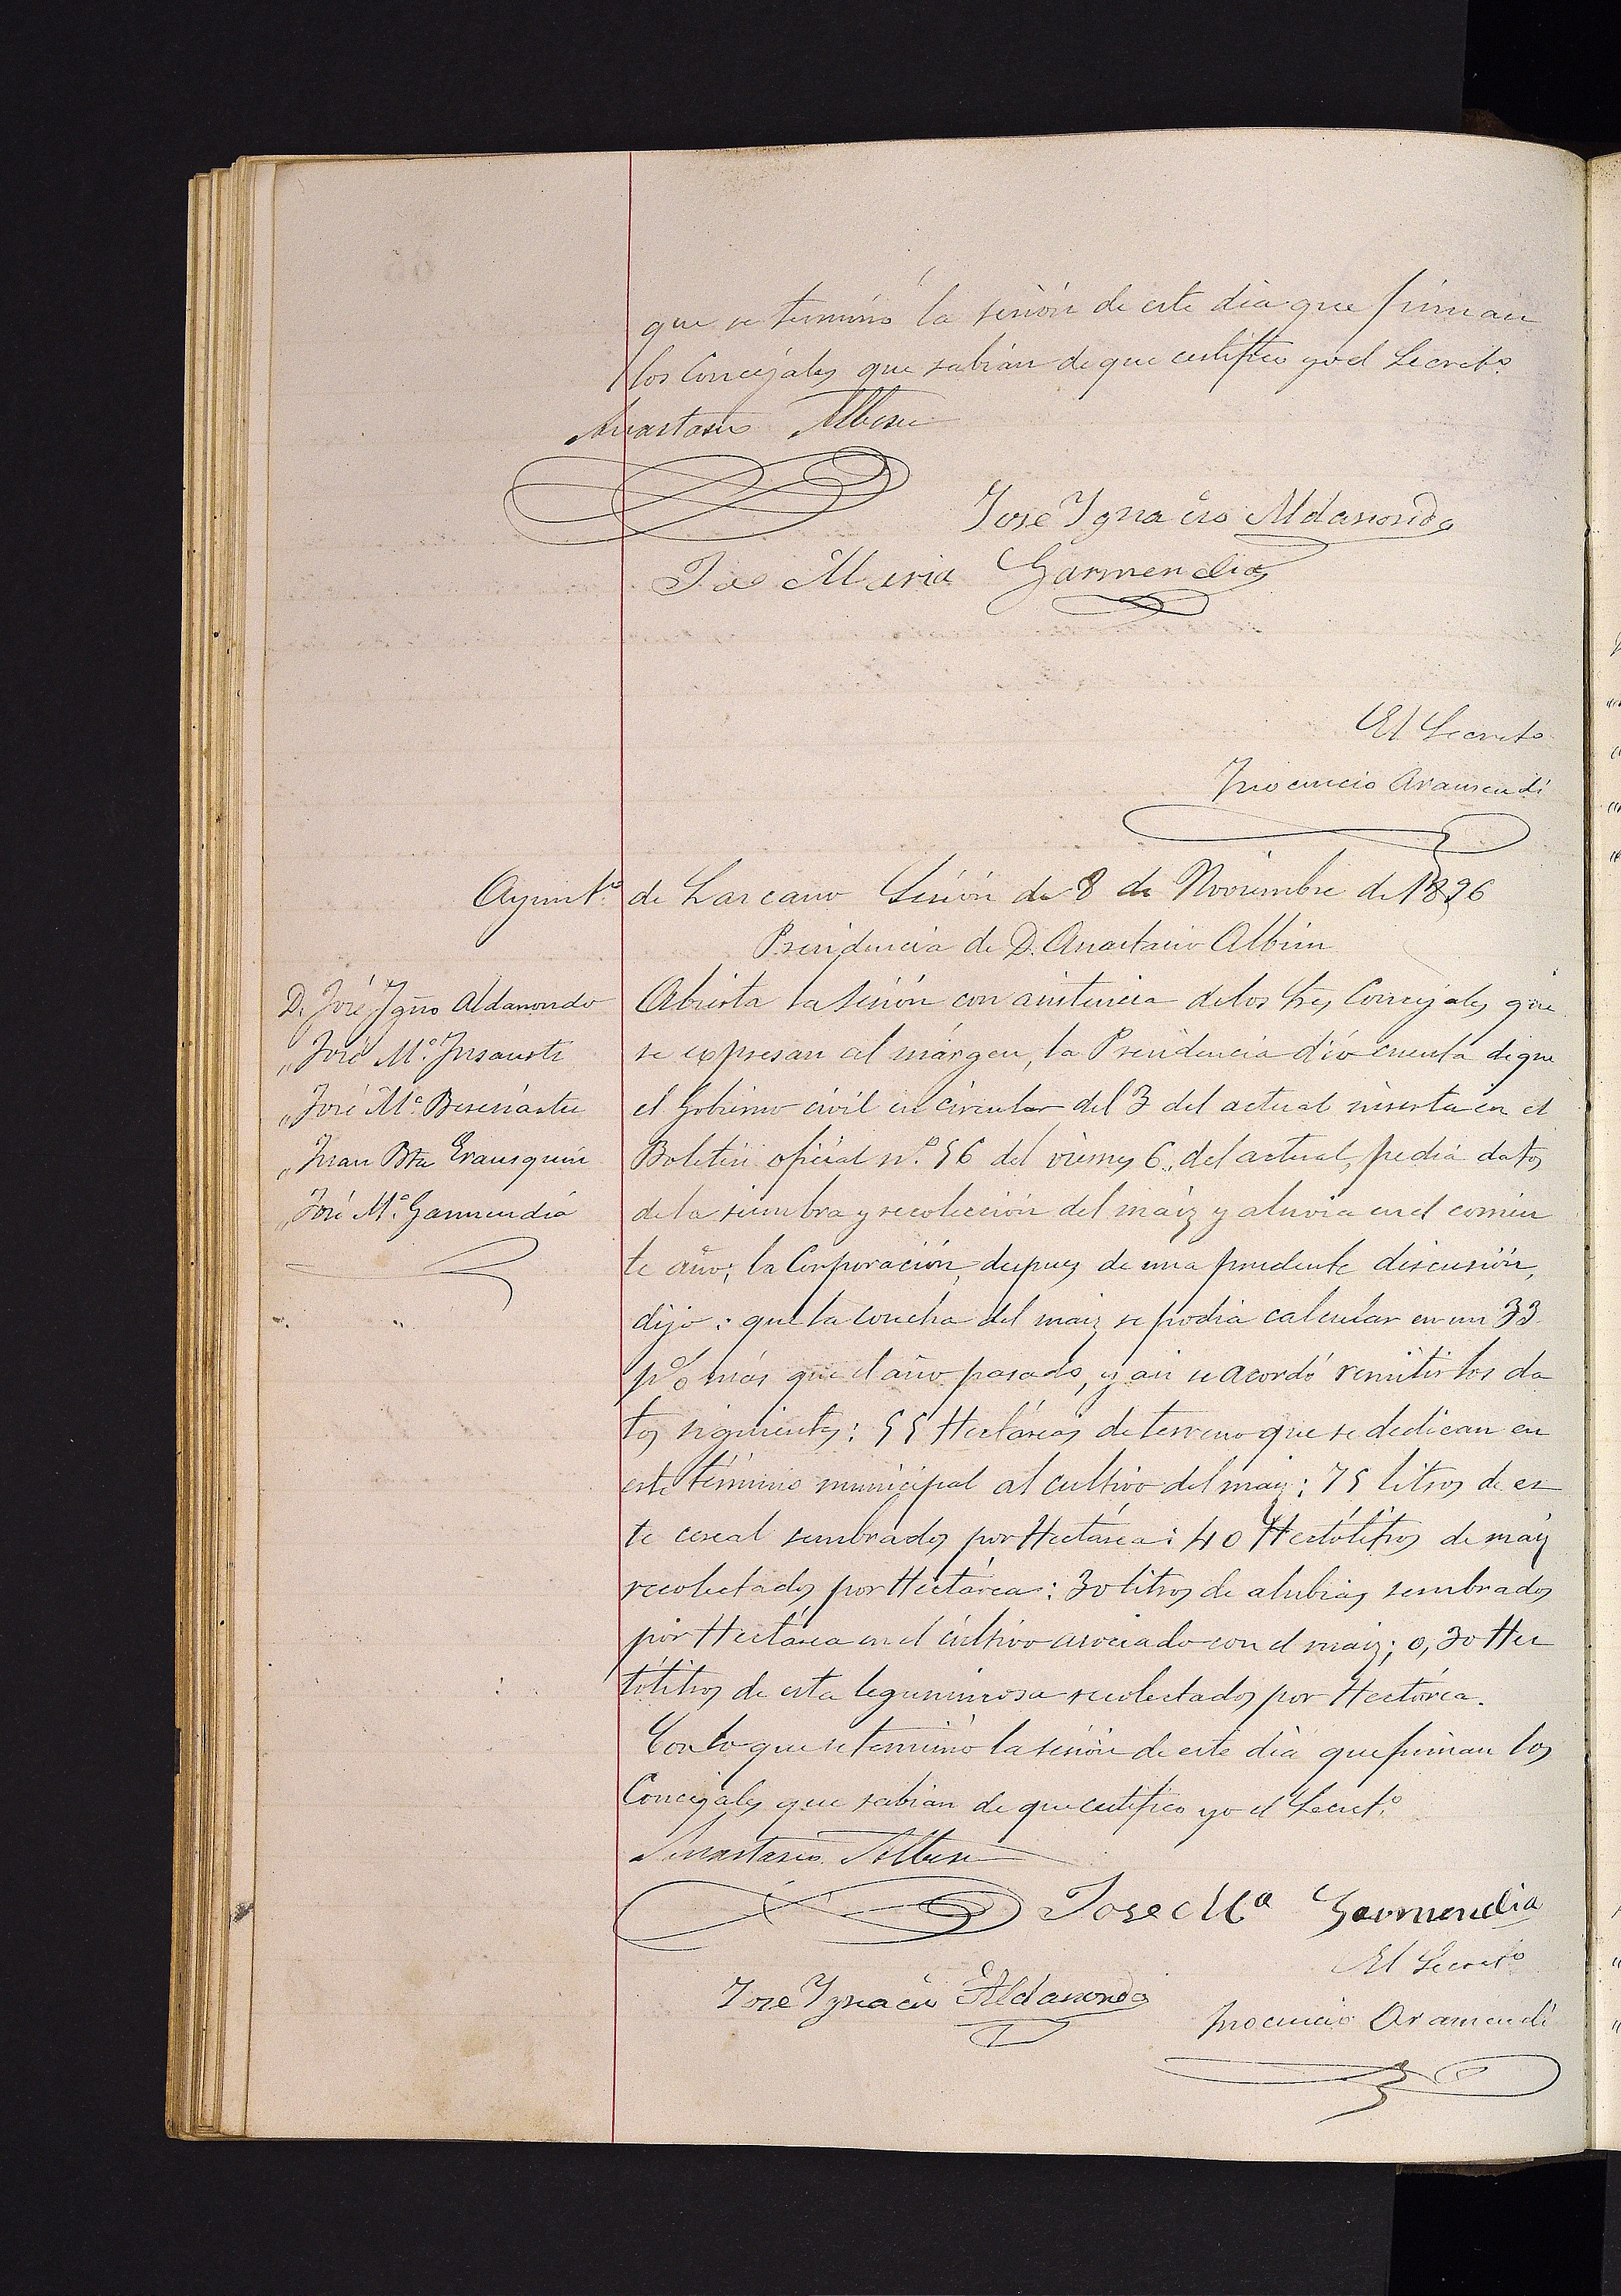 que se terminó la sesión de este dia que firman
los Concejales que sabián de que certifico yo el Secretº
Anastasio Albisu
José Ignacio Aldanondo
José Maria Garmendia
El Secretº
Inocencio Aramendi
Ayuntº de Lazcano Sesión de 8 de Noviembre de 1896
Presidencia de D. Anastasio Albisu
D. José Ignº Aldanondo
„ José Mº Insausti
„ José Mº
„ Juan Bta Erausquin
„ José Mº Garmendia
Abierta la sesión con asistencia de los tres Concejales que
se expresan al márgen, la Presidencia dió cuenta de que
el Gobierno civil en circular del 3 del actual inserta en el
Boletin oficial nº 56 del viernes 6 del actual, pedia datos
de la siembra y recolección del maiz y aluvia en el corrien
te año; la Corporación, despues de una prudente discusión,
dijo: que la cosecha del maiz se podia calcular en un 33
p% más que el año pasado, y asi se acordó remitir los da
tos siguientes: 55 Hectáreas de terreno que se dedican en
este término municipal al cultivo del maiz: 75 litros de es
te cereal sembrados por Hectárea: 40 Hectólitros de maiz
recolectados por Hectárea: 30 litros de alubias sembrados
por Hectárea en el cultivo asociado con el maiz; 0,30 Hec
tólitros de esta leguminosa recolectados por Hectárea.
Con lo que se terminó la sesión de este dia que firman los
Concejales que sabian de que certifico yo el Secretº
Anastasio Albisu
Jose Mª Garmendia
El Secretº
Jose Ignacio Aldanondo
Inocencio Aramendi